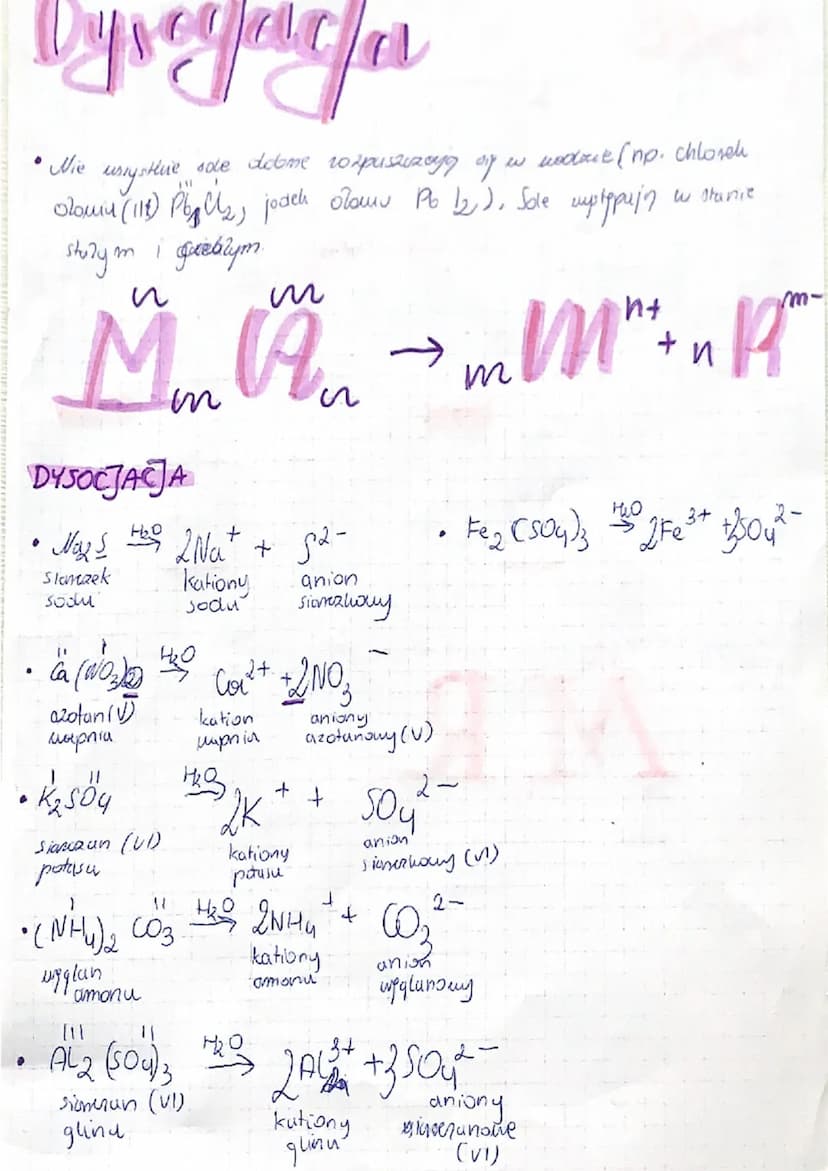 Dysocjacja
• Nie wszystkie sole dobrze rozpuszczają się w wodzie (np. chlorek
ołowiu (III) Pb Cl₂, jodek ołowiu Pb I₂). Sole występują w stanie
stałym i
n m
Mₘ Rₙ → m Mⁿ⁺ + n Rᵐ⁻
DYSOCJACJA
• Na₂S H₂O → 2Na⁺ + S²⁻
siarczek kationy anion
sodu sodu siarczkowy
• Fe₂(SO₄)₃ H₂O → 2Fe³⁺ + 3SO₄²⁻
II I
• Ca(NO₃)₂ H₂O → Ca²⁺ + 2NO₃⁻
azotan (V) kation aniony
wapnia wapnia azotanowy (V)
I II
• K₂SO₄ H₂O → 2K⁺ + SO₄²⁻
siarczan (VI) kationy anion
potasu potasu siarczkowy (VI)
I II
• (NH₄)₂ CO₃ H₂O → 2NH₄⁺ + CO₃²⁻
węglan kationy anion
amonu amonu węglanowy
III II
• Al₂(SO₄)₃ H₂O → 2Al³⁺ + 3SO₄²⁻
siarczan (VI) kationy aniony
glinu glinu siarczanowe
(VI)